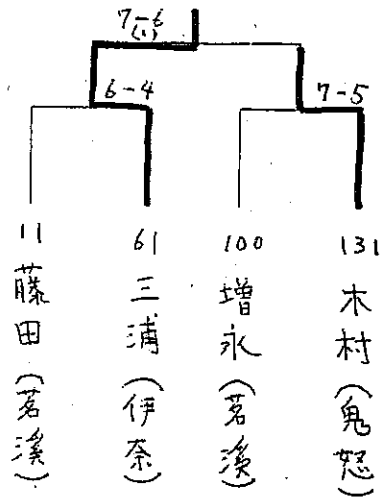 7-6
(1)
6-4
7-5
11
藤田(茗溪)
61
三浦(伊奈)
100
増永(茗溪)
131
木村(鬼怒)